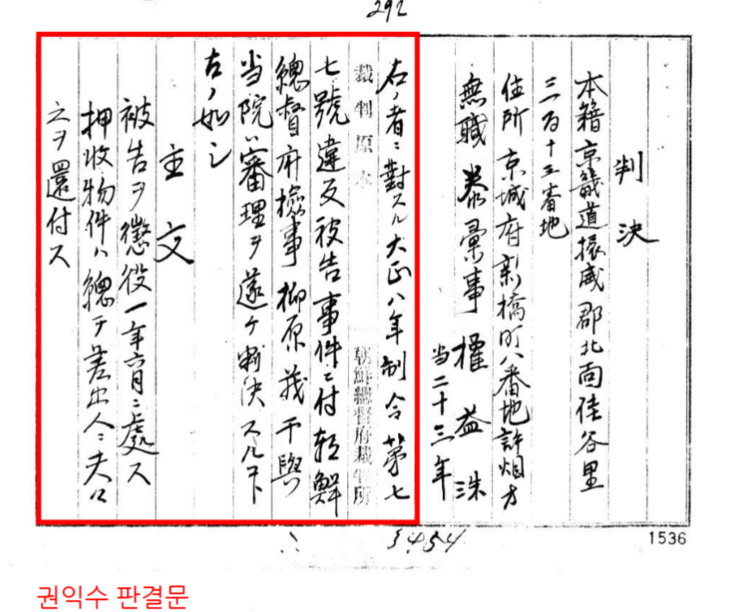 292
判決
本籍京畿道振威郡北面佳谷里
三百十五番地
住所京城府新橋町八番地許烟方
無職 彙事 權益洙
当二十三年
右ノ者ニ對スル大正八年制令第七
裁判原本 朝鮮總督府裁判所
七號違反被告事件ニ付朝鮮
總督府檢事柳原茂干與
当院ハ審理ヲ遂ケ判決スルコト
左ノ如シ
主文
被告ヲ懲役一年六月ニ處ス
押收物件ハ總テ差出人ニ夫々
之ヲ還付ス
5454
1536
권익수 판결문